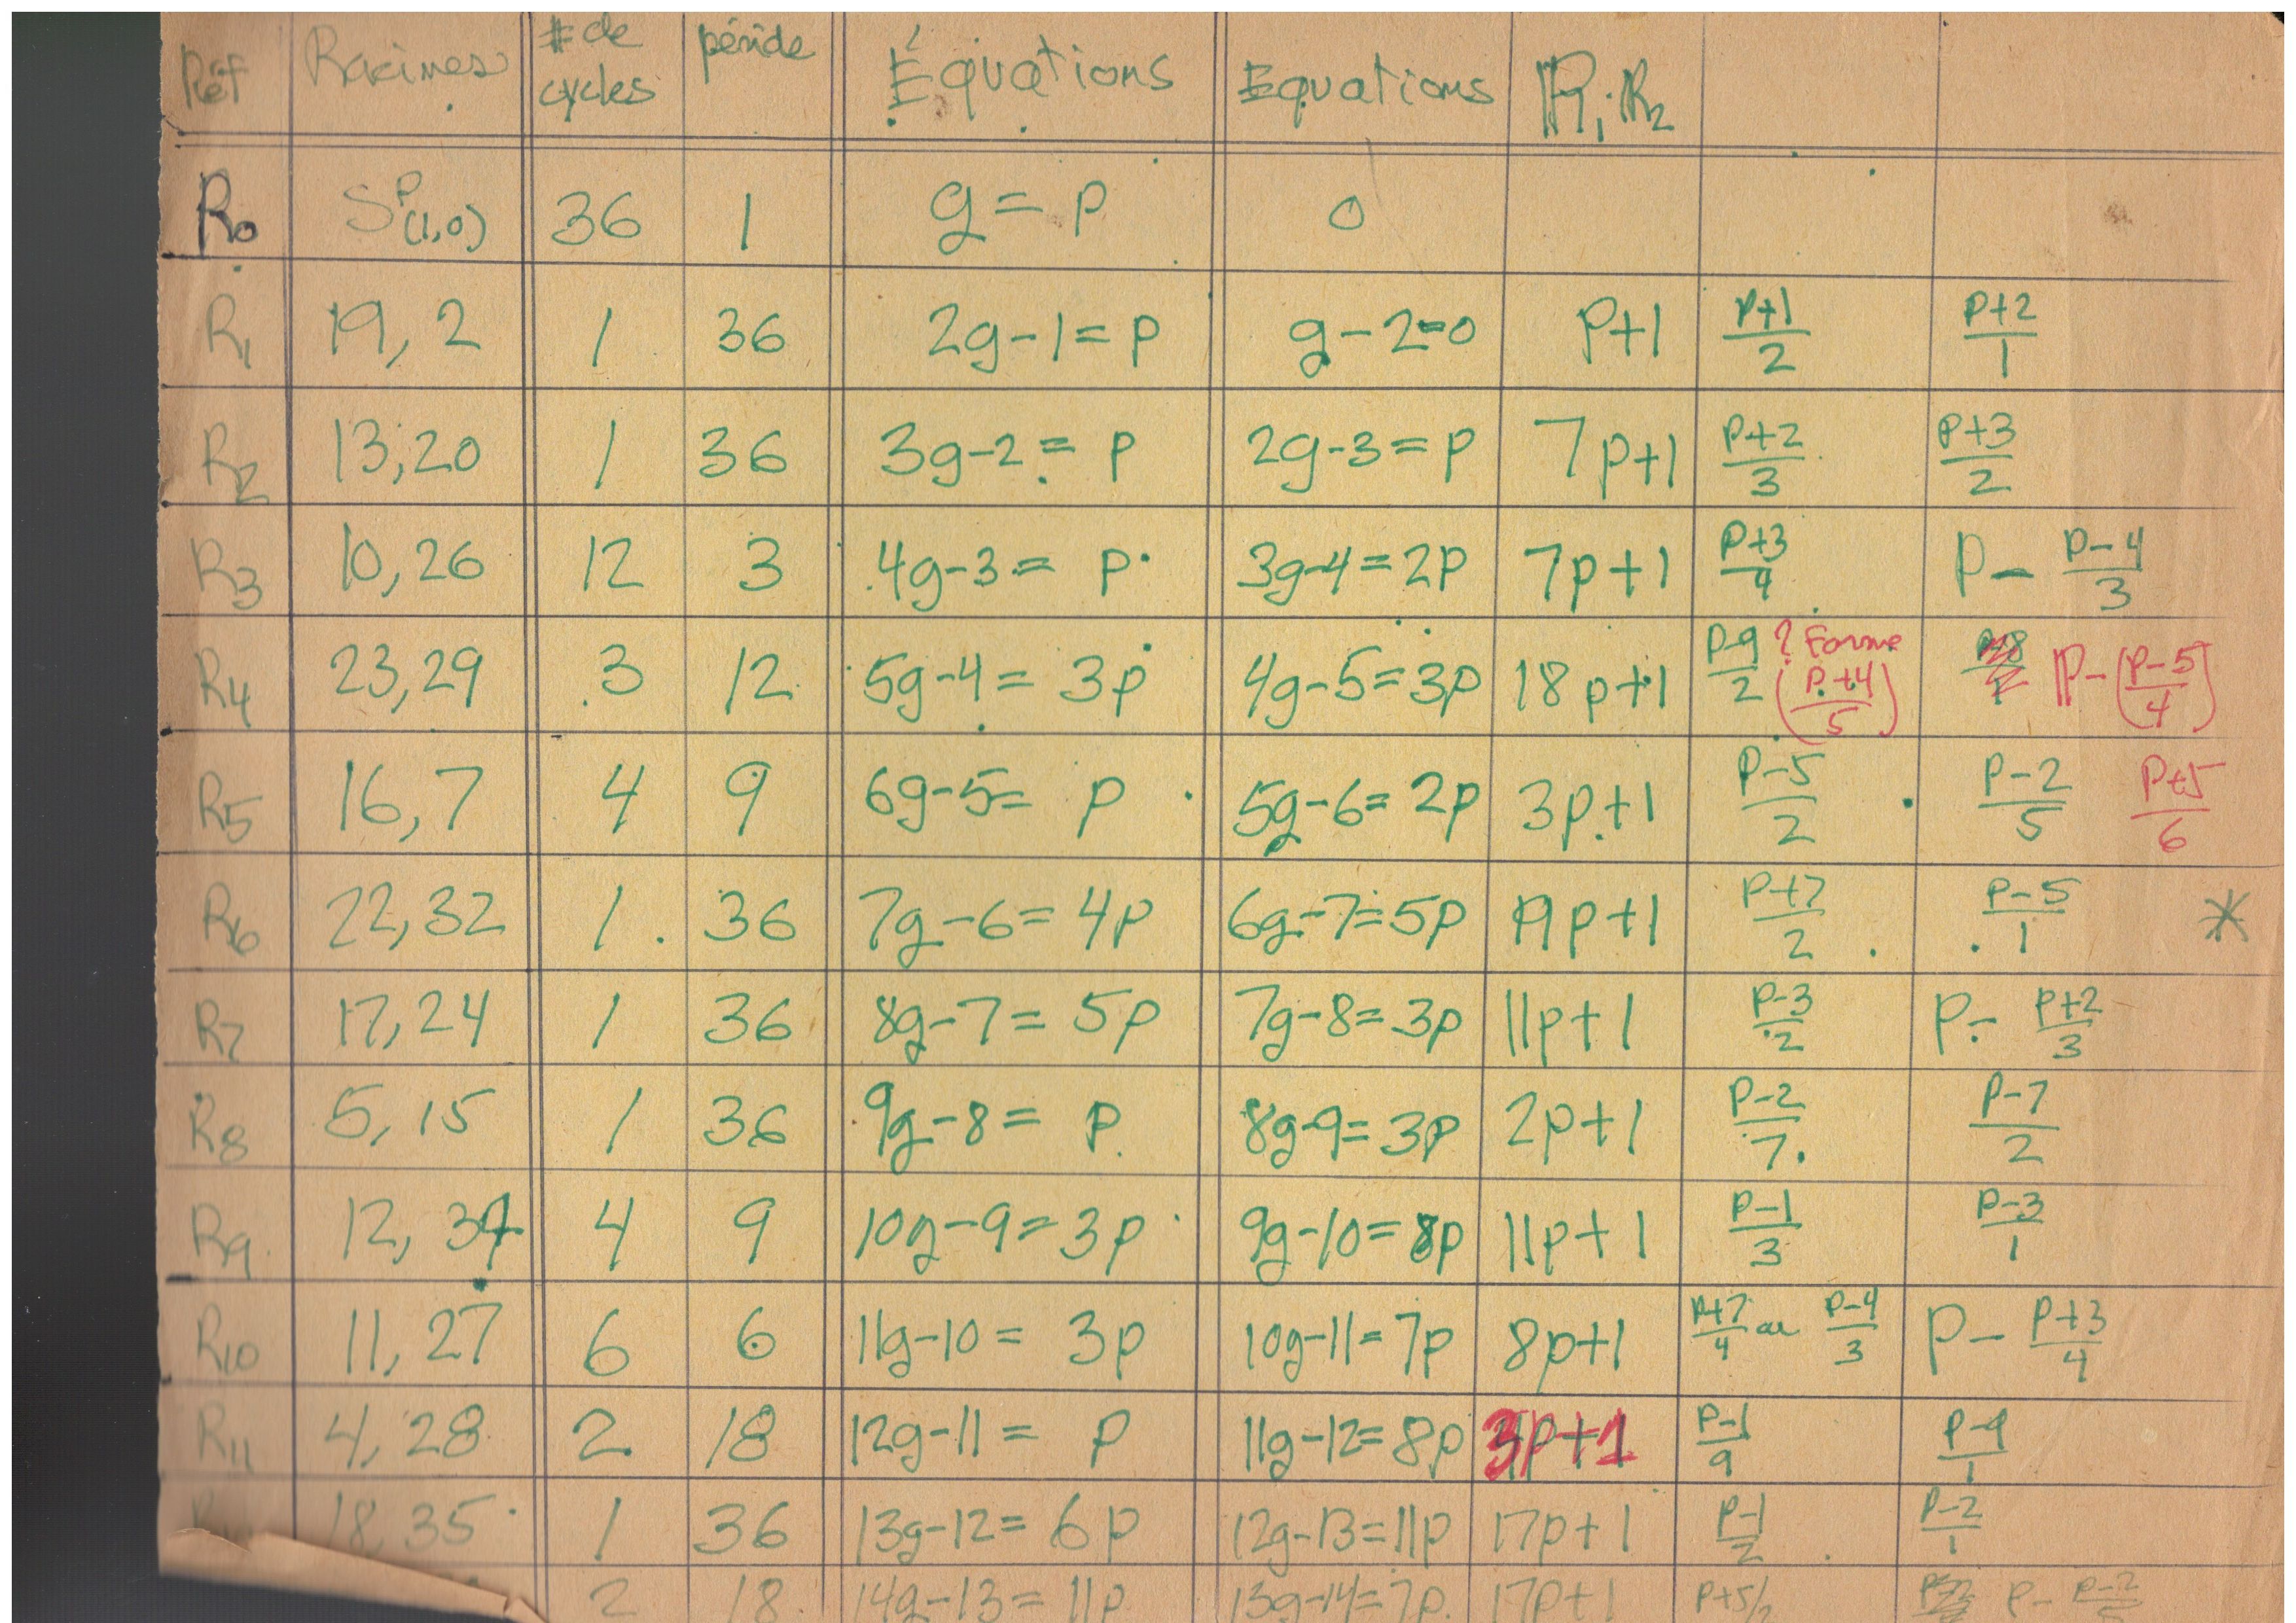 Réf Racines # de cycles période Équations Equations R₁·R₂
R₀ Sᵖ(1,0) 36 1 g = p 0
R₁ 19, 2 1 36 2g-1 = p g-2=0 p+1 (p+1)/2 (p+2)/1
R₂ 13,20 1 36 3g-2 = p 2g-3 = p 7p+1 (p+2)/3 (p+3)/2
R₃ 10,26 12 3 4g-3 = p 3g-4=2p 7p+1 (p+3)/4 p - (p-4)/3
R₄ 23,29 3 12 5g-4 = 3p 4g-5=3p 18p+1 (p-9)/2 ? Forme ((p+4)/5) p-((p-5)/4)
R₅ 16,7 4 9 6g-5= p 5g-6=2p 3p+1 (p-5)/2 (p-2)/5 (p+5)/6
R₆ 22,32 1 36 7g-6=4p 6g-7=5p 19p+1 (p+7)/2 (p-5)/1 *
R₇ 17,24 1 36 8g-7=5p 7g-8=3p 11p+1 (p-3)/2 p - (p+2)/3
R₈ 5,15 1 36 9g-8= p 8g-9=3p 2p+1 (p-2)/7 (p-7)/2
R₉ 12,34 4 9 10g-9=3p 9g-10=8p 11p+1 (p-1)/3 (p-3)/1
R₁₀ 11,27 6 6 11g-10= 3p 10g-11=7p 8p+1 (p+7)/4 ou (p-4)/3 p - (p+3)/4
R₁₁ 4,28 2 18 12g-11= p 11g-12=8p 3p+1 (p-1)/9 (p-9)/1
18,35 1 36 13g-12= 6p 12g-13=11p 17p+1 (p-1)/2 (p-2)/1
2 18 14g-13= 11p 13g-14=7p 17p+1 p+5/2